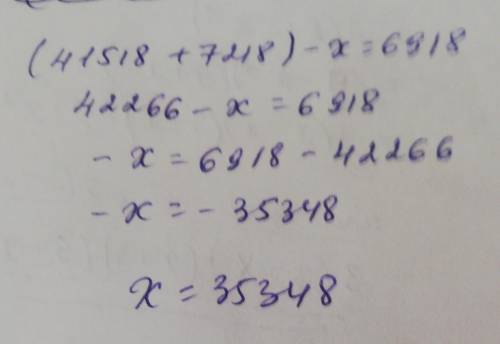 (41518 + 7218) - x = 6918
42266 - x = 6918
- x = 6918 - 42266
- x = - 35348
x = 35348